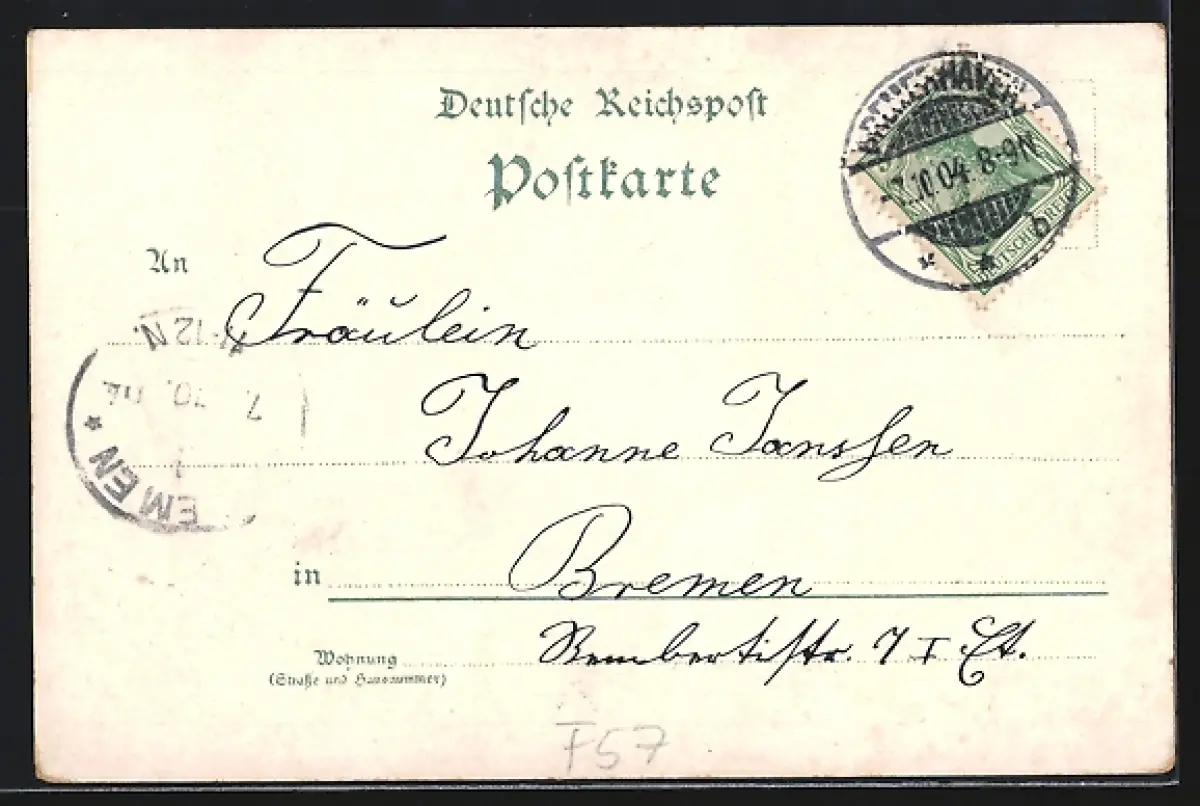 Deutsche Reichspost
Postkarte
BREMERHAVEN
7.10.04. 8-9N.
* * b
DEUTSCHES REICH
An
Fräulein
Johanne Janssen
in Bremen
Wohnung Rembertistr. 7 I Et.
(Straße und Hausnummer)
EMEN *
7. 10.
-12 N.
F57